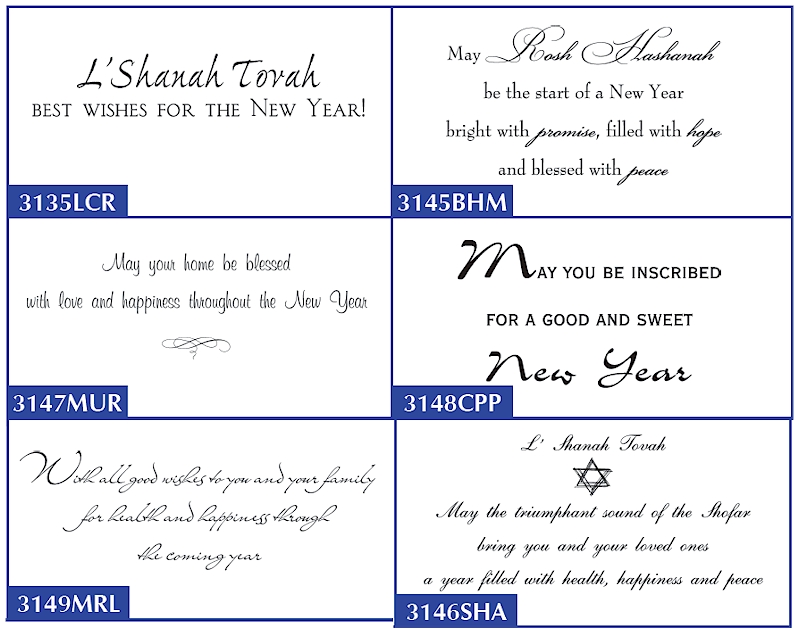 L'Shanah Tovah
BEST WISHES FOR THE NEW YEAR!
3135LCR
May Rosh Hashanah
be the start of a New Year
bright with promise, filled with hope
and blessed with peace
3145BHM
May your home be blessed
with love and happiness throughout the New Year
3147MUR
MAY YOU BE INSCRIBED
FOR A GOOD AND SWEET
New Year
3148CPP
With all good wishes to you and your family
for health and happiness through
the coming year
3149MRL
L' Shanah Tovah
May the triumphant sound of the Shofar
bring you and your loved ones
a year filled with health, happiness and peace
3146SHA